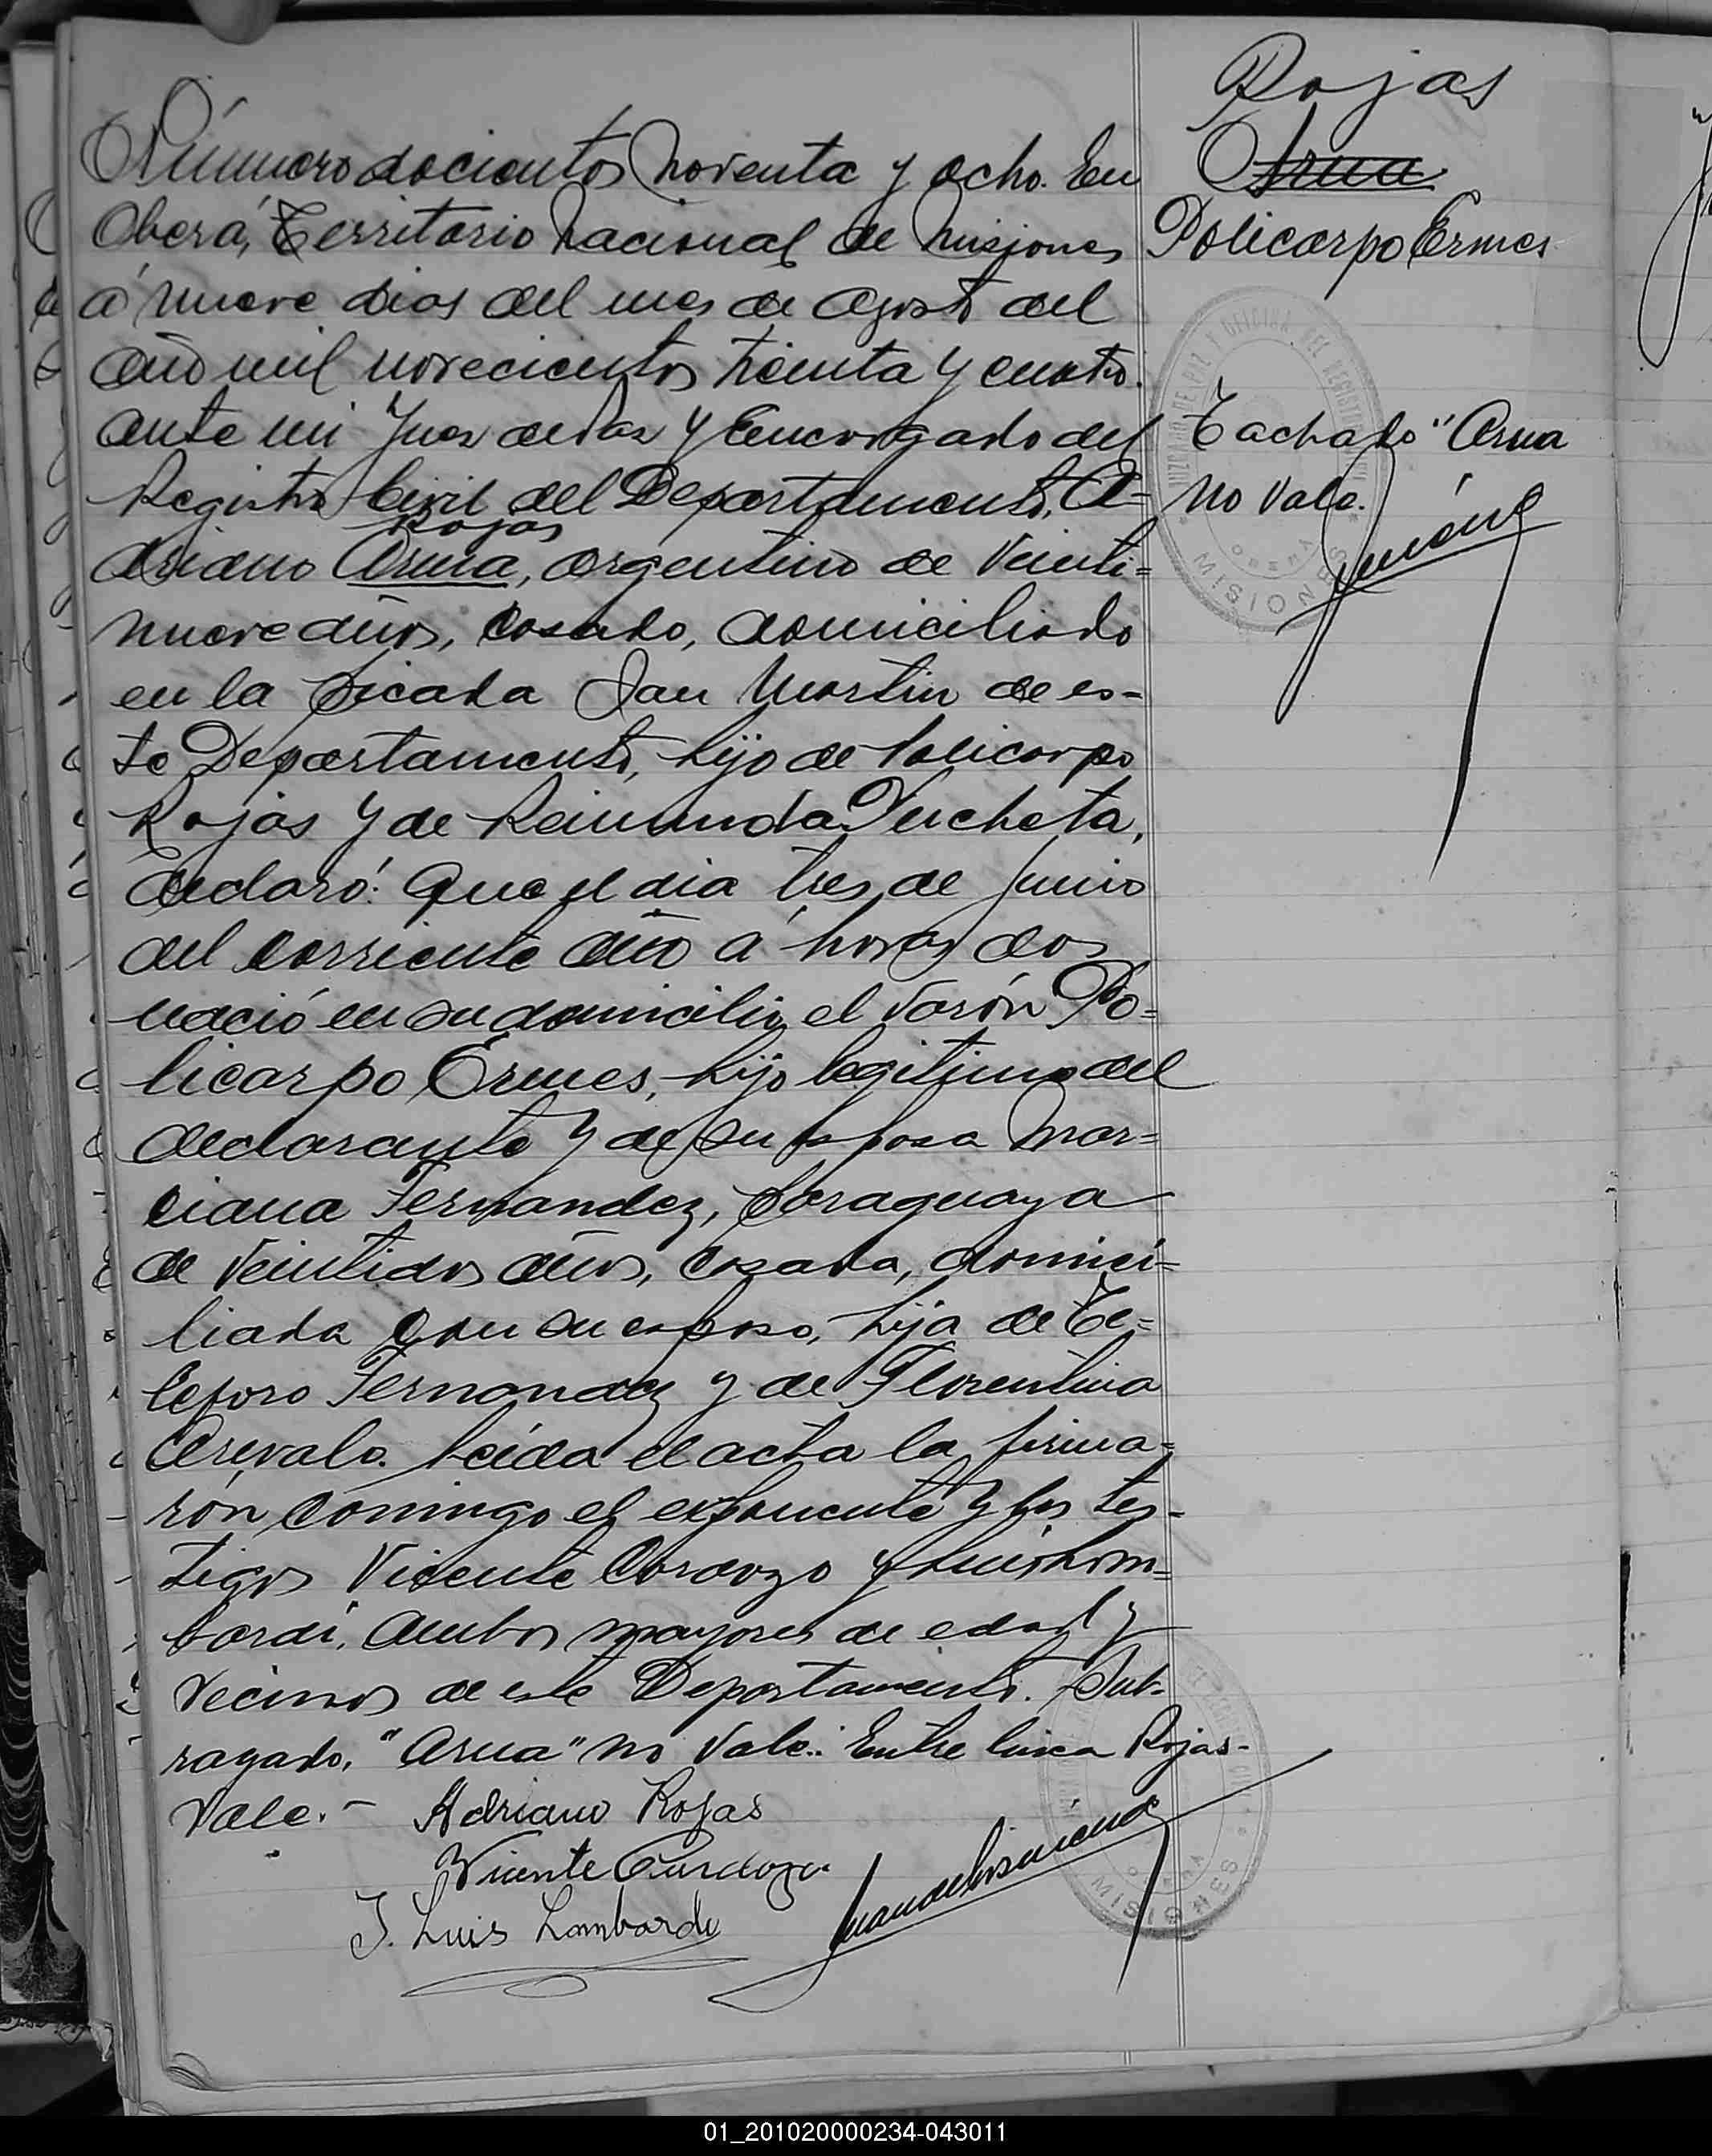 Rojas
Arua
Policarpo Ermes
Tachado "Arua
no vale.
Número docientos noventa y ocho. En
Oberá, Territorio Nacional de Misiones
á nueve dias del mes de Agosto del
año mil novecientos treinta y cuatro.
ante mi Juez de Paz y Encargado del
Registro Civil del Departamento, A=
Rojas
driano Arua, argentino de veinti=
nueve años, casado, domiciliado
en la picada San Martin de es-
te Departamento, hijo de Policarpo
Rojas y de Raimunda
declaró: Que el dia tres de Junio
del corriente año á horas dos
nació en su domicilio el varón Po=
licarpo Ermes, hijo legitimo del
declarante y de su esposa Mar=
ciana Fernandez, paraguaya
de veintidos años, casada, domici=
liada con su esposo, hija de Te=
lesforo Fernandez y de Florentina
Arevalo. Leida el acta la firma=
rón conmigo el exponente y los tes-
tigos Vicente Cardozo y Luis Lom=
bardi, ambos mayores de edad y
vecinos de este Departamento. Sub-
rayado, "Arua" no vale.: Entre linea Rojas-
vale.-
Adriano Rojas
Vicente Cardozo.
J. Luis Lombardi
JUZGADO DE PAZ Y OFICINA DEL REGISTRO CIVIL
OBERA
MISIONES
MISIONES
01_201020000234-043011